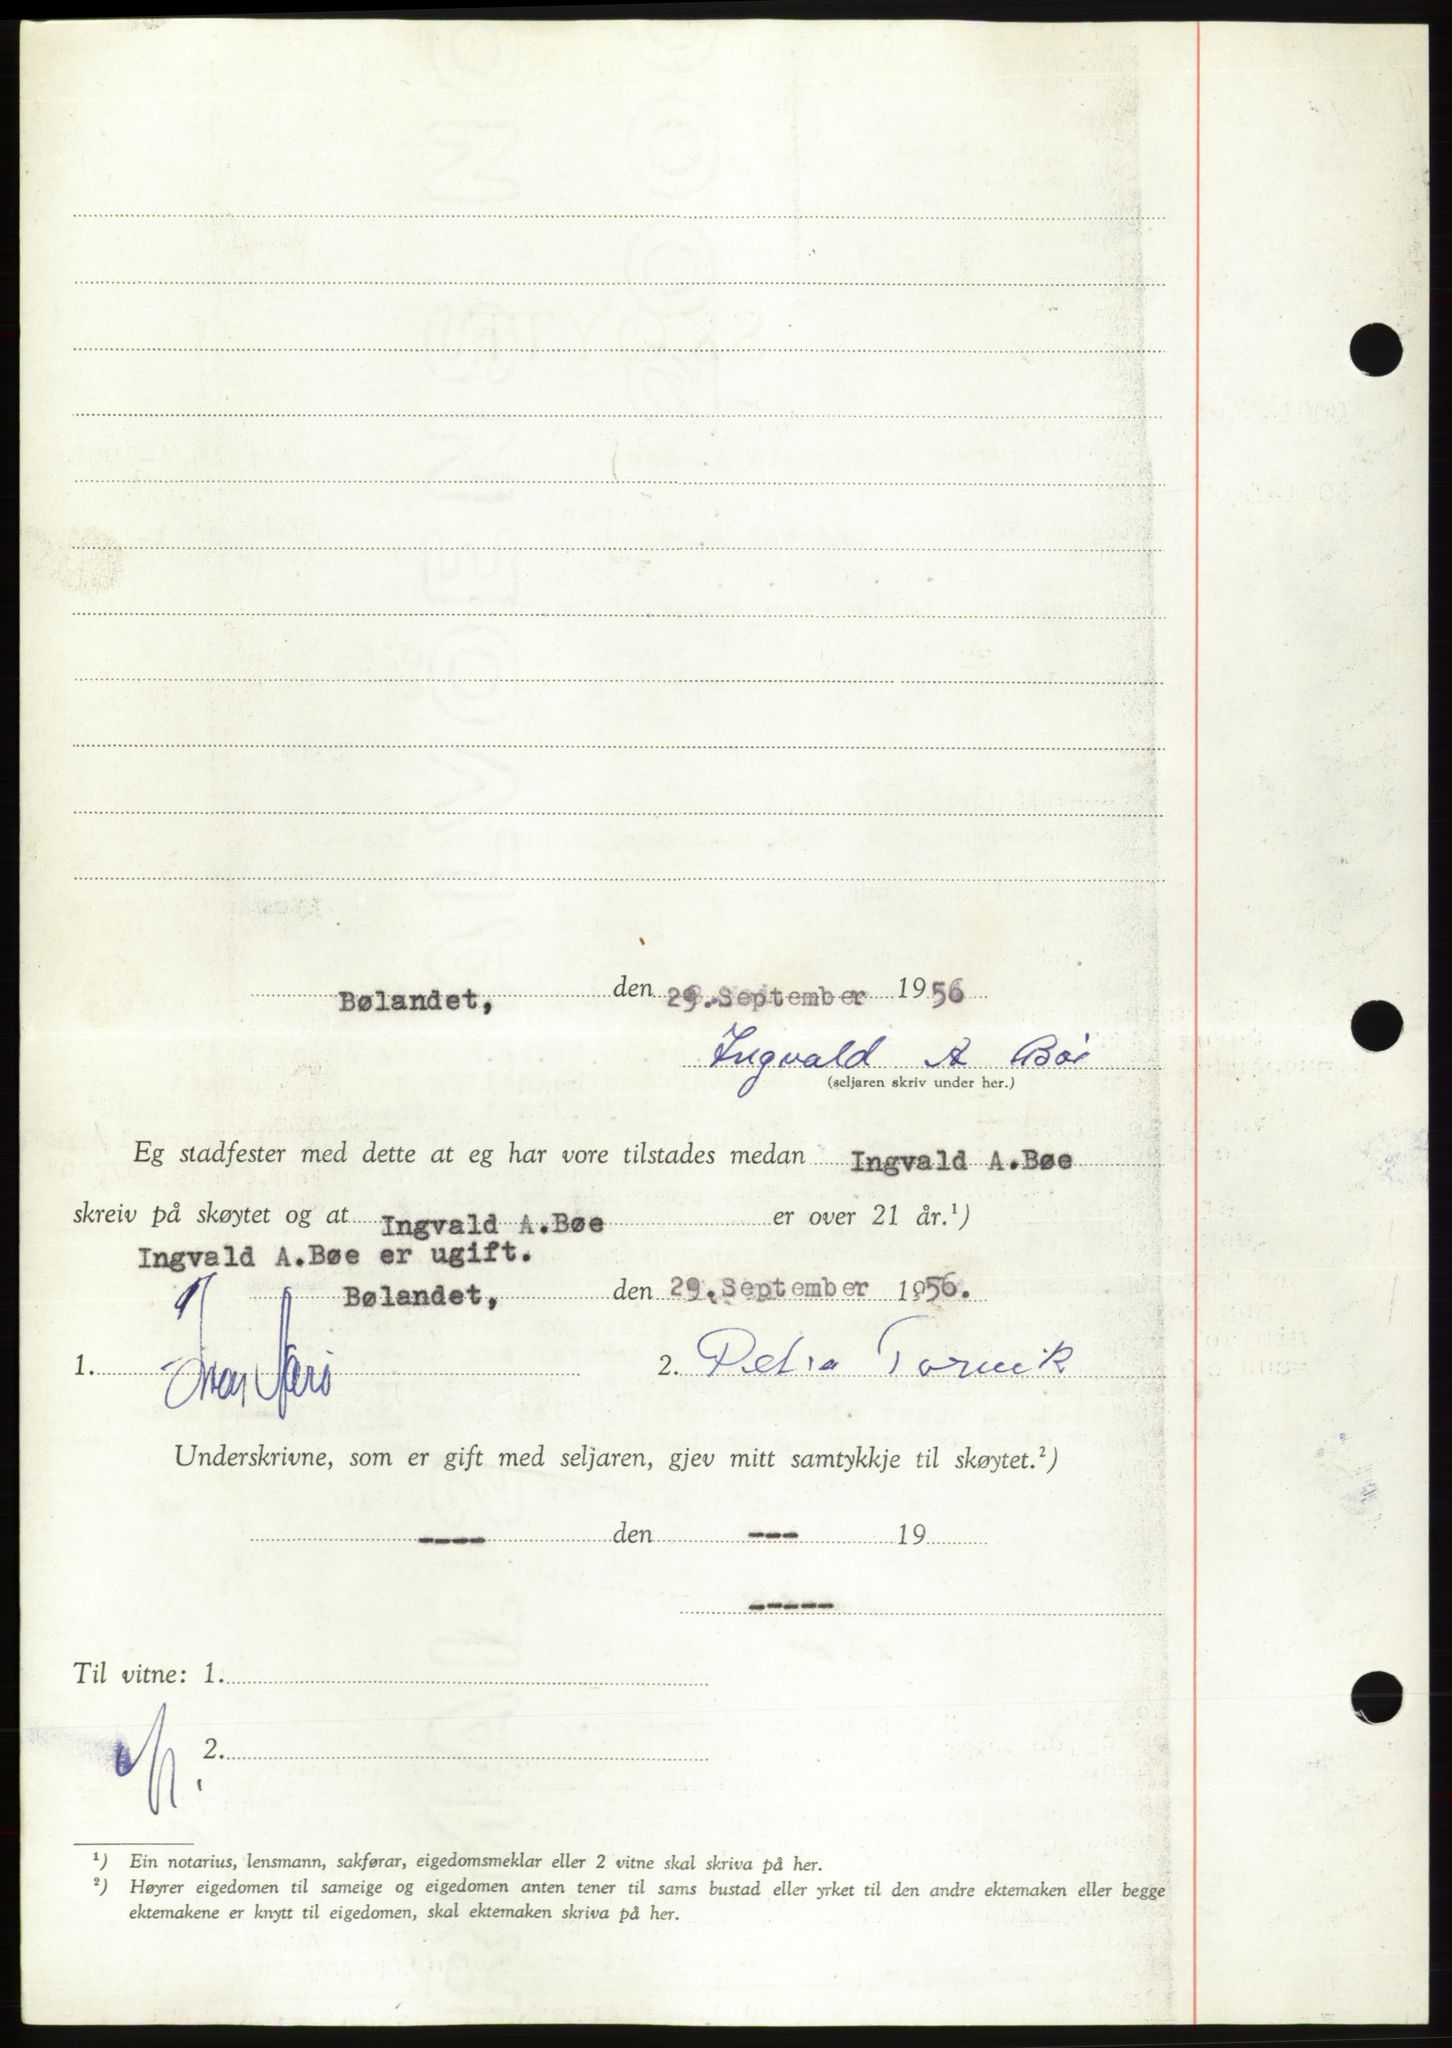 Bølandet, den 29.September 1956
Ingvald A Bøe
(seljaren skriv under her.)
Eg stadfester med dette at eg har vore tilstades medan Ingvald A.Bøe
skreiv på skøytet og at Ingvald A.Bøe er over 21 år.¹)
Ingvald A.Bøe er ugift.
Bølandet, den 29.September 1956.
1. 2. Petra
Underskrivne, som er gift med seljaren, gjev mitt samtykkje til skøytet.²)
---- den --- 19
-----
Til vitne: 1.
2.
¹) Ein notarius, lensmann, sakførar, eigedomsmeklar eller 2 vitne skal skriva på her.
²) Høyrer eigedomen til sameige og eigedomen anten tener til sams bustad eller yrket til den andre ektemaken eller begge
ektemakene er knytt til eigedomen, skal ektemaken skriva på her.